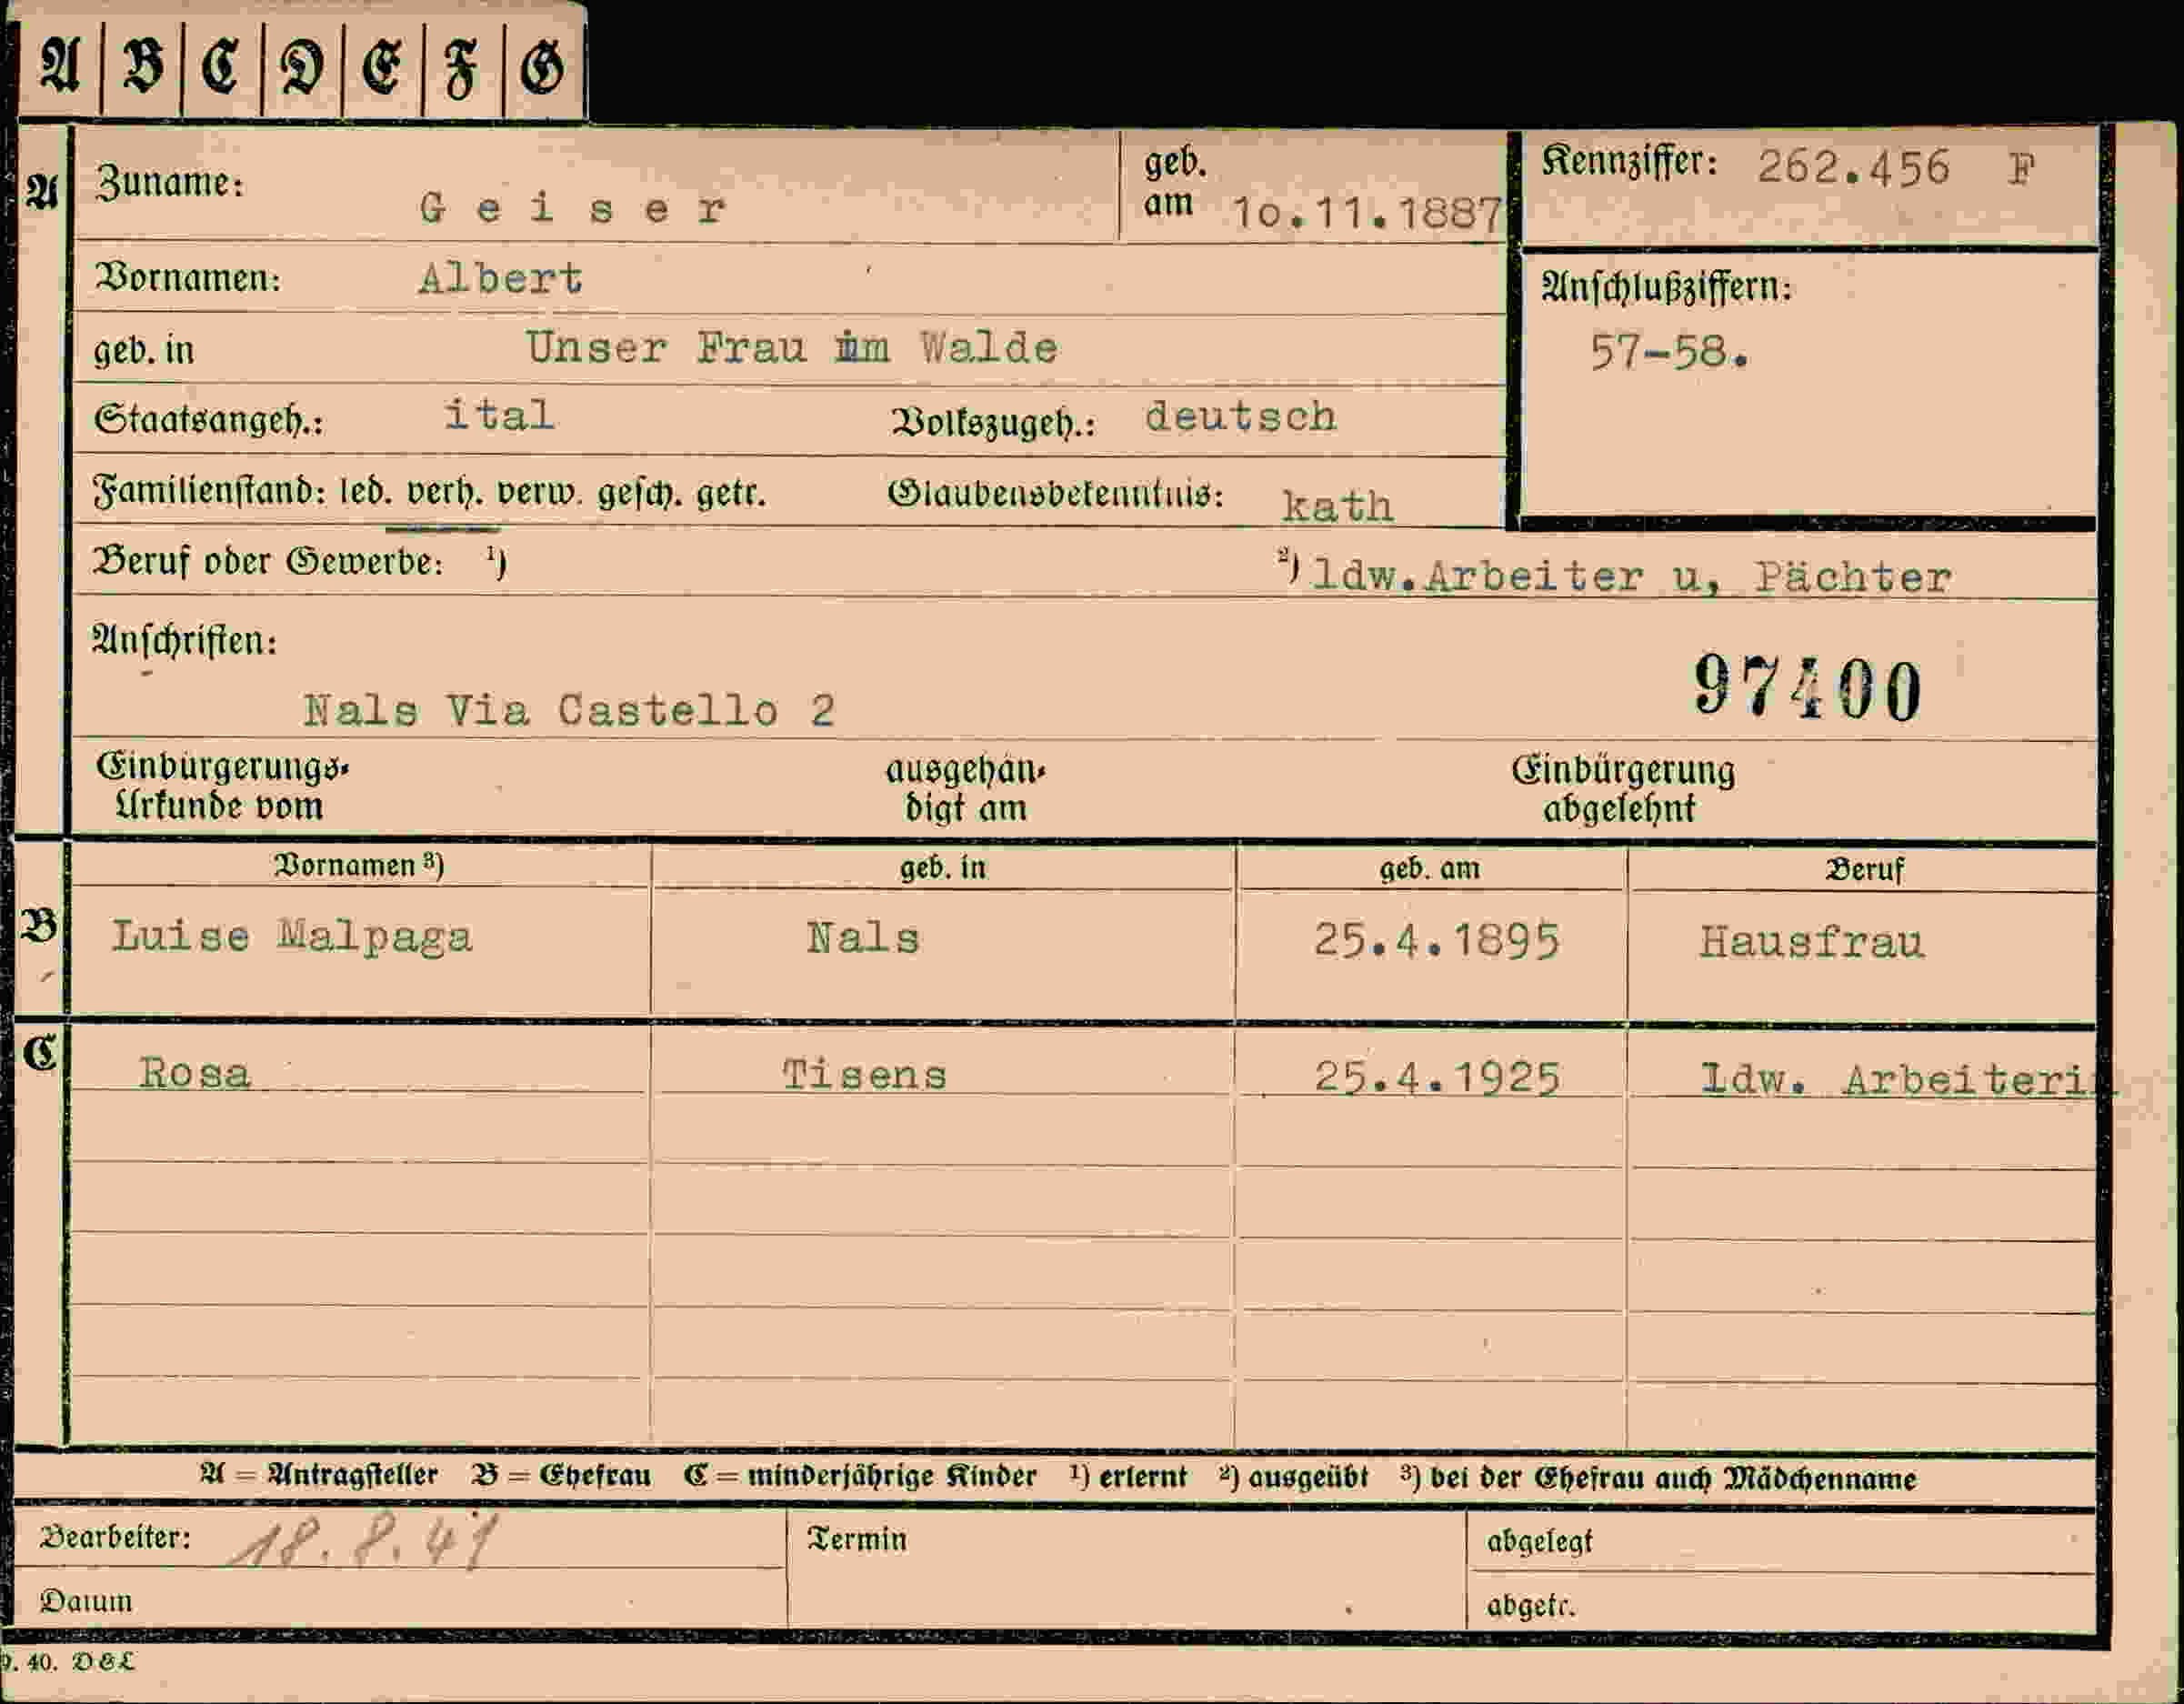 A B C D E F G
A Zuname: Geiser geb. am 1o.11.1887 Kennziffer: 262.456 F
Vornamen: Albert
Anschlußziffern:
geb. in Unser Frau im Walde 57-58.
Staatsangeh.: ital Volkszugeh.: deutsch
Familienstand: led. verh. verw. gesch. getr. Glaubensbekenntnis: kath
Beruf oder Gewerbe: ¹) ²) ldw.Arbeiter u, Pächter
Anschriften:
97400
Nals Via Castello 2
Einbürgerungs-Urkunde vom ausgehändigt am Einbürgerung abgelehnt
Vornamen ³) geb. in geb. am Beruf
B Luise Malpaga Nals 25.4.1895 Hausfrau
C Rosa Tisens 25.4.1925 ldw. Arbeiterin
A = Antragsteller B = Ehefrau C = minderjährige Kinder ¹) erlernt ²) ausgeübt ³) bei der Ehefrau auch Mädchenname
Bearbeiter: 18.8.41 Termin abgelegt
Datum abgetr.
9. 40. D&L